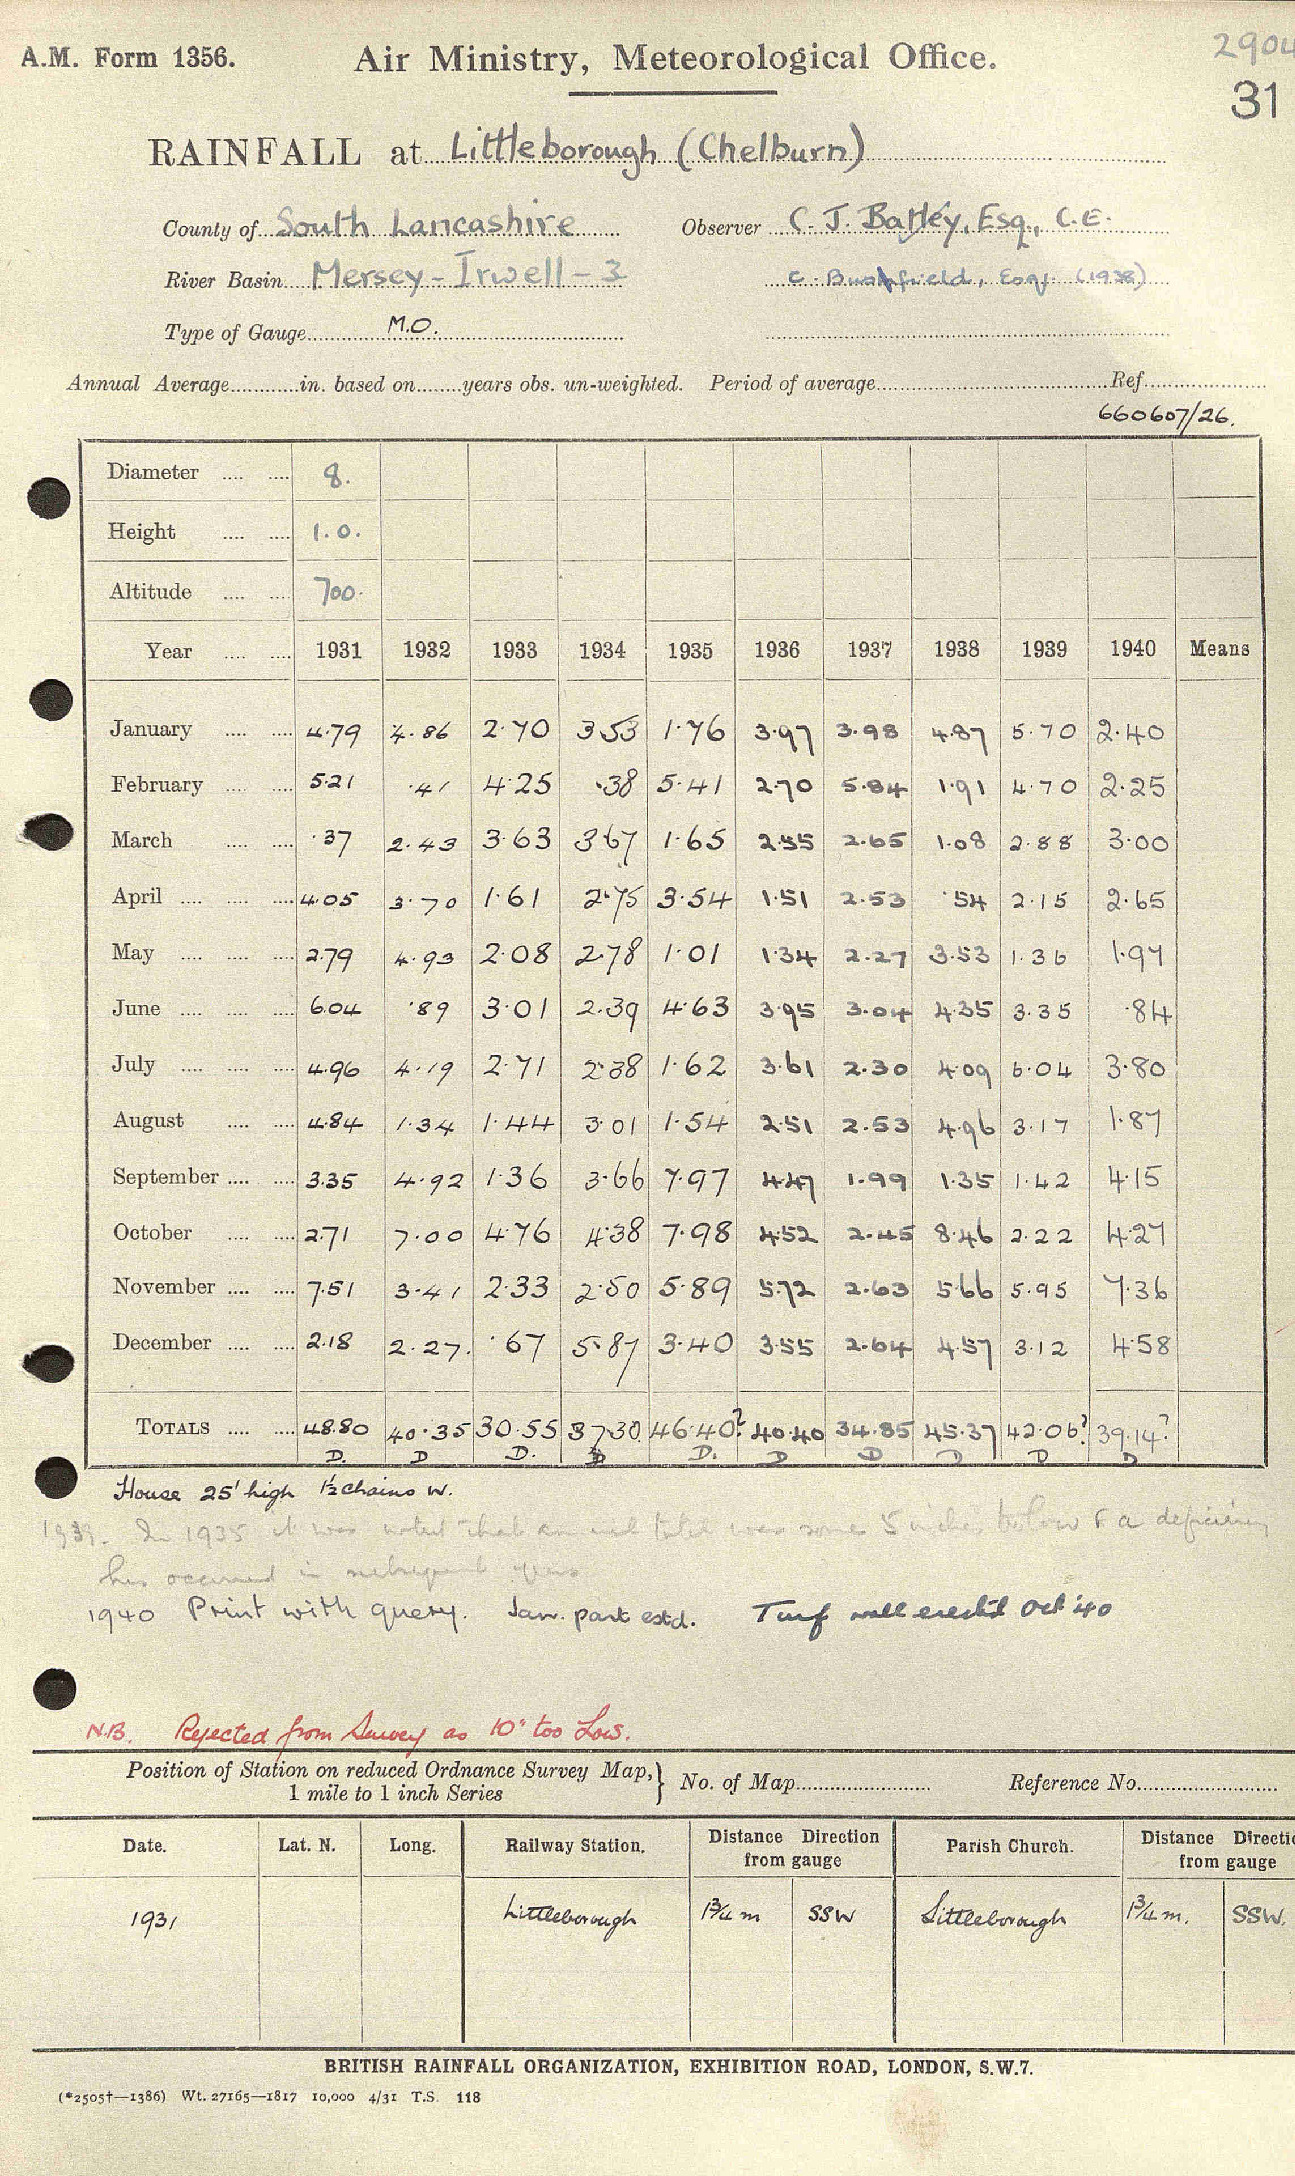 2904
A.M. Form 1356. Air Ministry, Meteorological Office.
31
RAINFALL at Littleborough (Chelburn)
County of South Lancashire Observer C. J. Batley, Esq., C.E.
River Basin Mersey - Irwell - 3 C. Bushfield, Esq. (1938)
Type of Gauge M.O.
Annual Average in. based on years obs. un-weighted. Period of average Ref.
660607/26.
Diameter 8.
Height 1.0.
Altitude 700.
Year 1931 1932 1933 1934 1935 1936 1937 1938 1939 1940 Means
January 4.79 4.86 2.70 3.53 1.76 3.97 3.98 4.87 5.70 2.40
February 5.21 .41 4.25 .38 5.41 2.70 5.84 1.91 4.70 2.25
March .37 2.43 3.63 3.67 1.65 2.55 2.65 1.08 2.88 3.00
April 4.05 3.70 1.61 2.75 3.54 1.51 2.53 .54 2.15 2.65
May 2.79 4.93 2.08 2.78 1.01 1.34 2.27 3.53 1.36 1.97
June 6.04 .89 3.01 2.39 4.63 3.95 3.04 4.35 3.35 .84
July 4.96 4.19 2.71 2.38 1.62 3.61 2.30 4.09 6.04 3.80
August 4.84 1.34 1.44 3.01 1.54 2.51 2.53 4.96 3.17 1.87
September 3.35 4.92 1.36 3.66 7.97 4.47 1.99 1.35 1.42 4.15
October 2.71 7.00 4.76 4.38 7.98 4.52 2.45 8.46 2.22 4.27
November 7.51 3.41 2.33 2.50 5.89 5.72 2.63 5.66 5.95 7.36
December 2.18 2.27. .67 5.87 3.40 3.55 2.64 4.57 3.12 4.58
TOTALS 48.80 40.35 30.55 37.30 46.40? 40.40 34.85 45.37 42.06? 39.14?
D. D D. D D. D D D D D
House 25' high 1½ chains W.
1939. In 1935 it was noted that annual total was some 5 inches below & a deficiency
has occurred in subsequent years
1940 Print with query. Jan. part estd. Turf wall erected Oct '40
N.B. Rejected from Survey as 10" too Low.
Position of Station on reduced Ordnance Survey Map, 1 mile to 1 inch Series } No. of Map Reference No.
Date. Lat. N. Long. Railway Station. Distance Direction from gauge Parish Church. Distance Directi from gauge
1931 Littleborough 1¾ m SSW Littleborough 1¾ m. SSW.
BRITISH RAINFALL ORGANIZATION, EXHIBITION ROAD, LONDON, S.W.7.
(*2505†—1386) Wt. 27165—1817 10,000 4/31 T.S. 118